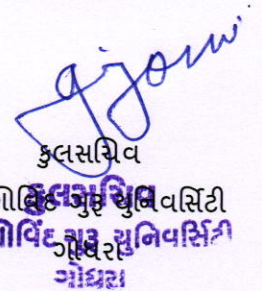 કુલસચિવ
ગોવિંદ ગુરૂ યુનિવર્સિટી
ગોધરા
કુલસચિવ
ગોવિંદ ગુરૂ યુનિવર્સિટી
ગોધરા